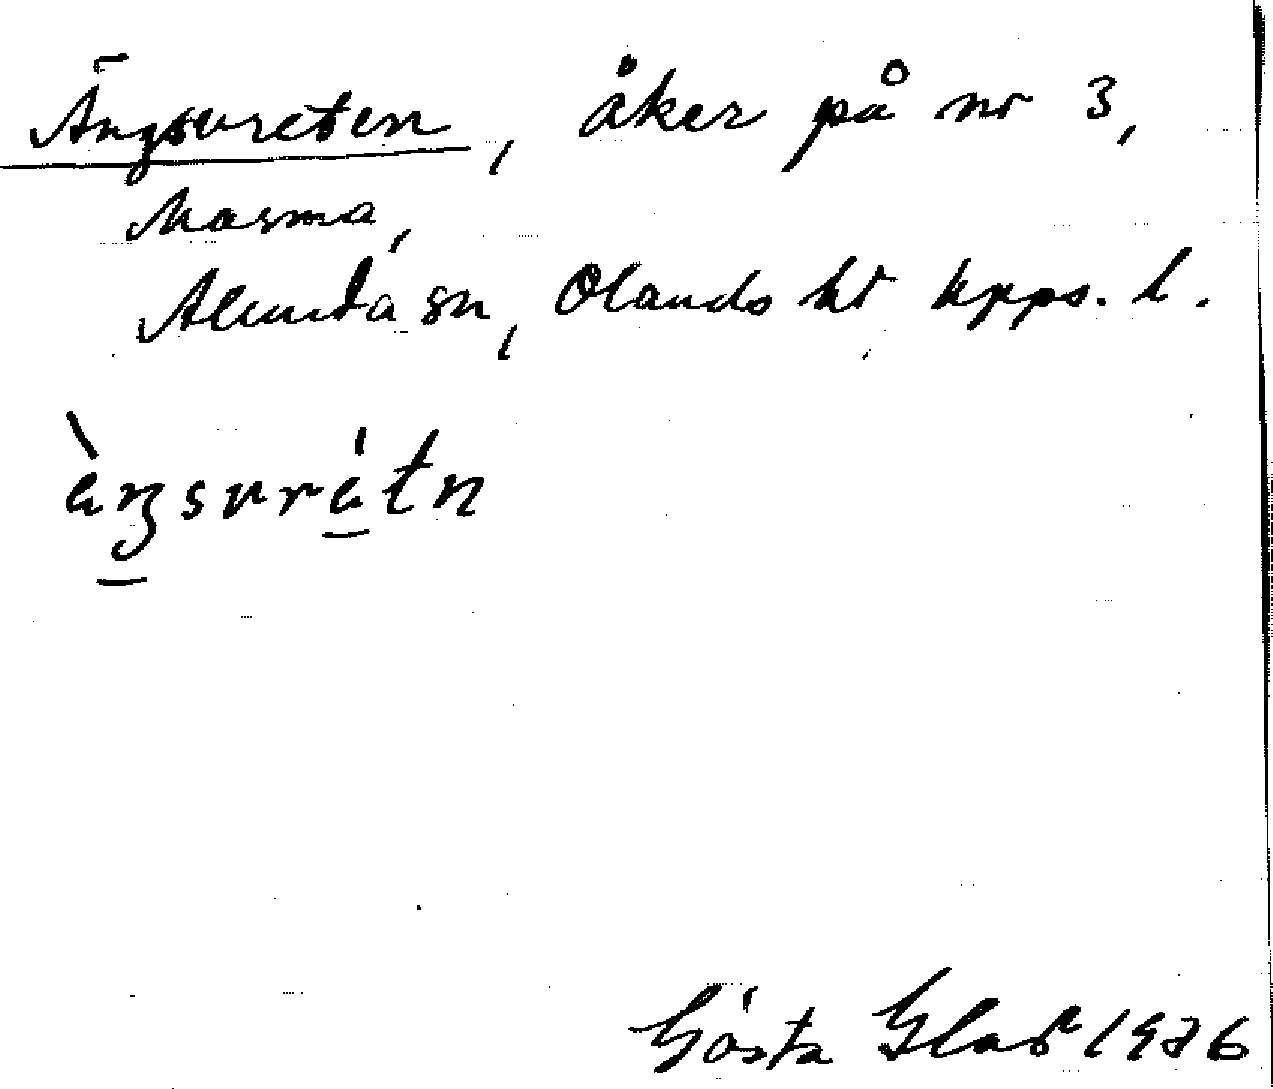 Ängsvreten, åker på nr 3,
Marma,
Alunda sn, Olands hd Upps. l.
àŋsvrátn
Gösta 1976